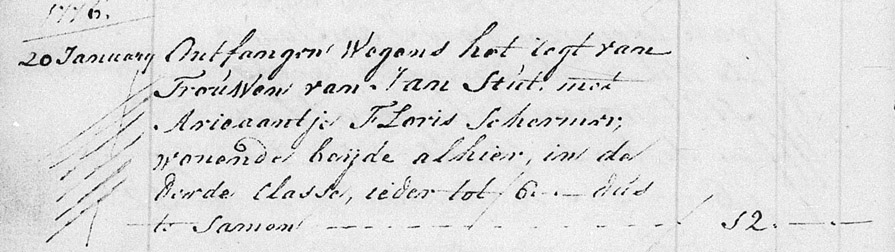 1776.
20 January Ontfangen Wegens het regt van
Trouwen van Jan Stut. met
Ariaantje Floris Schermer,
wonende beijde alhier, in de
derde Classe, ieder tot f 6.— dus
te samen - - - - - - - - - - f 12.—.—